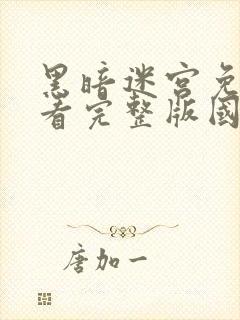 黑暗迷宫免
看完整版國
唐加一